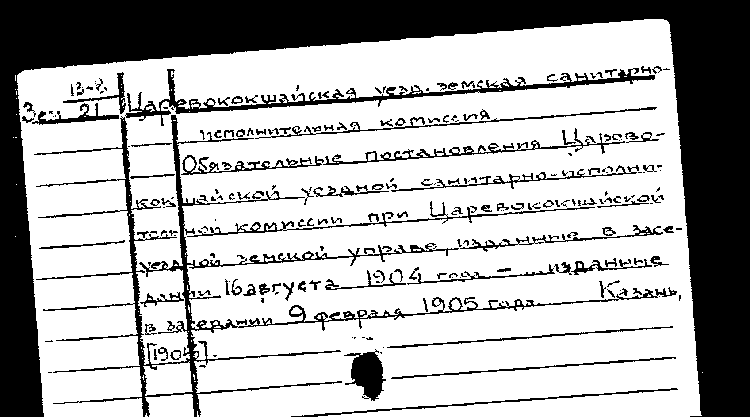 13-8
Зем 21 Царевококшайская уезд. земская санитарно-
исполнительная комиссия.
Обязательные постановления Царево-
кокшайской уездной санитарно-исполни-
тельной комиссии при Царевококшайской
уездной земской управе, изданные в засе-
дании 16 августа 1904 года – ... изданные
в заседании 9 февраля 1905 года. Казань,
[1905].